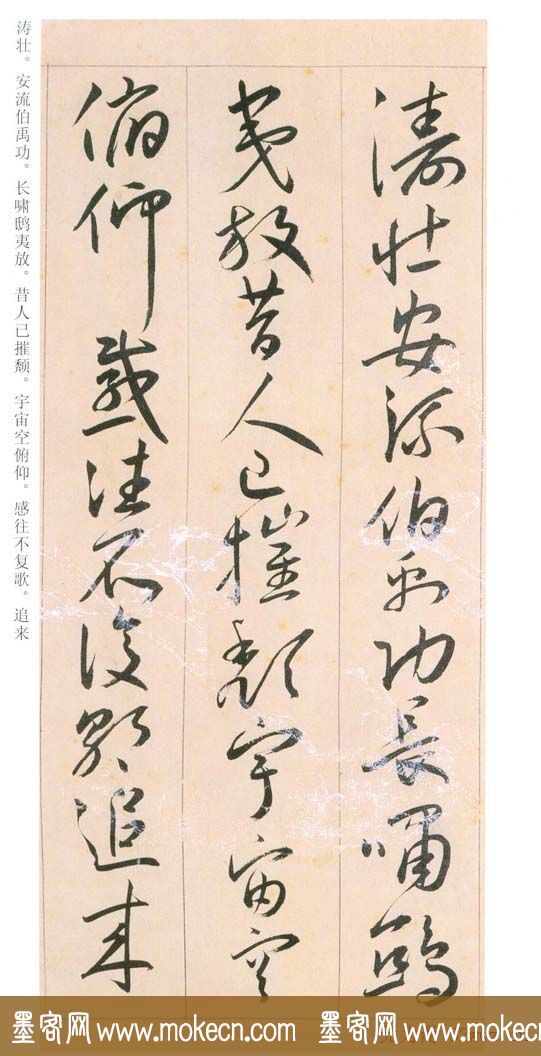 濤壮安流伯禹功長嘯鴟
夷放昔人已摧頹宇宙空
俯仰感往不復歌追来
涛壮。安流伯禹功。长啸鸱夷放。昔人已摧颓。宇宙空俯仰。感往不复歌。追来
墨客网 www.mokecn.com 墨客网 www.mokecn.com